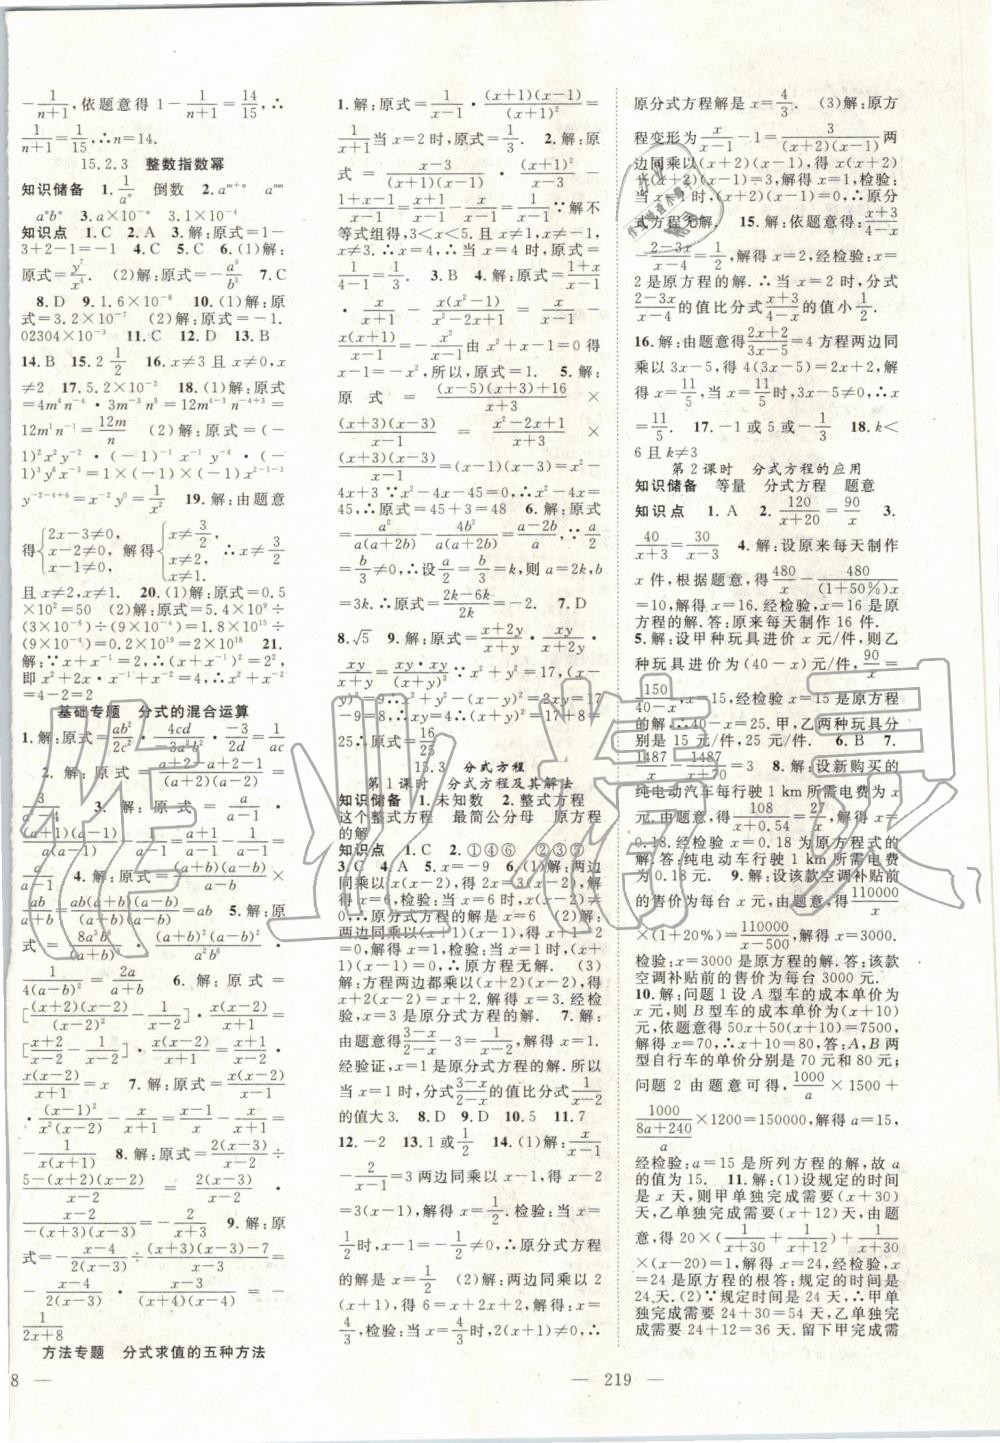 -1/(n+1),依题意得 1-1/(n+1)=14/15,∴
1/(n+1)=1/15,∴n=14.
15.2.3 整数指数幂
知识储备 1.1/aⁿ 倒数 2.aᵐ⁺ⁿ aᵐⁿ
aⁿbⁿ 3.a×10⁻ⁿ 3.1×10⁻⁴
知识点 1.C 2.A 3.解:原式=1-
3+2-1=-1 4.C 5.C 6.(1)解:
原式=y⁷/x⁶. (2)解:原式=-a⁹/b³. 7.C
8.D 9.1.6×10⁻⁸ 10.(1)解:原
式=3.2×10⁻⁷ (2)解:原式=-1.
02304×10⁻³ 11.C 12.D 13.B
14.B 15.2 1/2 16.x≠3 且 x≠0,x
≠2 17.5.2×10⁻² 18.(1)解:原式
=4m⁴n⁻⁴·3m⁻³n³=12m⁴⁻³n⁻⁴⁺³=
12m¹n⁻¹=12m/n (2)解:原式=(-
1)²x²y⁻²·(-1)¹x⁻¹y⁻¹·(-1)¹x⁻³
y⁻²⁻⁴⁺⁶=x⁻²y⁰=1/x² 19.解:由题意
得{2x-3≠0, x-2≠0, x-1≠0,解得{x≠3/2, x≠2, x≠1.∴x≠3/2
且 x≠2,x≠1. 20.(1)解:原式=0.5
×10²=50 (2)解:原式=5.4×10⁹÷
(3×10⁻⁶)÷(9×10⁻⁴)=1.8×10¹⁵÷
(9×10⁻⁴)=0.2×10¹⁹=2×10¹⁸ 21.
解:∵x+x⁻¹=2,∴(x+x⁻¹)²=2²,
即 x²+2x·x⁻¹+x⁻²=4,∴x²+x⁻²
=4-2=2
基础专题 分式的混合运算
1.解:原式=ab²/2c²·4cd/-3a²b²·-3/2d=1/ac
2.解:原式=(a+2+a-2)/((a+2)(a-2))÷(a-2+1)/(a-2)
(a+1)(a-1)/a·a/(a-1)
4.解:原式=(a+b)(a-b)/(a-b)×
ab/(a+b)=ab(a+b)(a-b)/((a+b)(a-b))=ab 5.解:原
式=8a³b⁶/(a+b)³·(a+b)²(a-b)²/a²b⁶·
1/4(a-b)²=2a/(a+b) 6.解:原式=
[(x+2)(x-2)/(x-2)²-1/(x-2)]·x(x-2)/(x+1)=
[(x+2)/(x-2)-1/(x-2)]·x(x-2)/(x+1)=(x+1)/(x-2)·
x(x-2)/(x+1)=x 7.解:原式=x(x-2)/(x-1)
·(x-1)²/x²(x-2)-x/(x+1)=(x-1)/x-x/(x+1)=
-1/x(x+1) 8.解:原式=2(x-3)/(x-2)÷
(5-(x+2)(x-2))/(x-2)=2(x-3)/(x-2)·
(x-2)/-(x+3)(x-3)=-2/(x+3) 9.解:原
式=-(x-4)/2(x-3)÷((x+3)(x-3)-7)/(x-3)=
-(x-4)/2(x-3)·(x-3)/(x+4)(x-4)=
-1/(2x+8)
方法专题 分式求值的五种方法
8 —
1.解:原式=1/(x-1)·(x+1)(x-1)/(x+1)²=
1/(x+1)当 x=2时,原式=1/3. 2.解:原
式=(x-3)/((x+1)(x-1))·(x+1)²/(x-3)+1=
(1+x+x-1)/(x-1)=(x+1)/(x-1)+1∵解不
等式组得,3<x<5.且 x≠1,x≠-1,
x≠3.∴x=4,当 x=4 时,原式=
1/(4-1)=1/3. 3.B 4.解:原式=(1+x)/x-1
·x/(x+1)-x/(x²-2x+1)
x(x+1)/(x-1)=-1/(x-1)由 x²+x-1=0得
x-1=-x²,所以,原式=1. 5.解:
原式=((x-5)(x+3)+16)/(x+3)×
(x+3)(x-3)/(x-1)=(x²-2x+1)/(x+3)×
(x+3)(x-3)/(x-1)=(x-1)(x-3)=x²-
4x+3∵x²-4x-45=0,∴x²-4x=
45,∴原式=45+3=48 6.解:原式
=a²/a(a+2b)-4b²/a(a+2b)=(a-2b)/a∵a/2=
b/3≠0,∴设a/2=b/3=k,则 a=2k,b
=3k.∴原式=(2k-6k)/2k=-2. 7.D
8.√5 9.解:原式=(x+2y)/(x+y)·xy/(x+2y)
-9=8,∴xy=4∴(x+y)²=8+17=
25∴原式=16/25
15.3 分式方程
第1课时 分式方程及其解法
知识储备 1.未知数 2.整式方程
这个整式方程 最简公分母 原方程
的解
知识点 1.C 2.①④⑥ ②③⑤
3.C 4.A 5.x=-9 6.(1)解:两边
同乘以x(x-2),得 2x=3(x-2)解
得x=6,检验:当 x=6时,x(x-2)≠
0,∴原分式方程的解是x=6 (2)解:
两边同乘以(x+1)(x-1),得x+1-2
=0,解得 x=1,检验:当 x=1时,(x+
1)(x-1)=0,∴原方程无解. (3)
解:方程两边都乘以(x+2)(x-2)得
x+2(x-2)=x+2.解得 x=3.经检
验,x=3是原分式方程的解. 7.解:
依题意得:(3-x)/(2-x)-1/(x-2)=3.解得 x=1.
经验证,x=1是原分式方程的解.所以
当 x=1 时,分式(3-x)/(2-x)的值比分式1/(x-2)
的值大3. 8.D 9.D 10.5 11.7
12.-2 13.1或1/2 14.(1)解:x/(x-1)
-2/(x-1)=3两边同乘以 x-1,得 x-2
=3(x-1),解得x=1/2.检验:当x=
1/2时,x-1=-1/2≠0,∴原分式方程
的解是 x=1/2 (2)解:两边同乘以 2
(x+1),得 2x=6(x+1)-2,解得x=
4/3,检验:当 x=4/3时,2(x+1)≠0,∴
原分式方程解是 x=4/3. (3)解:原方
程变形为x/(x-1)-1=3/((x+2)(x-1))两
边同乘以(x+2)(x-1),得 x(x+2)
-(x+2)(x-1)=3,解得 x=1,检验:
当 x=1时,(x+2)(x-1)=0,∴原分
式方程无解. 15.解:依题意得:(x+3)/(4-x)
-(2-3x)/(x-4)=1/2,解得x=2,经检验:x=
2是原方程的解.∴当 x=2 时,分式
(2-3x)/(x-4)的值比分式(x+3)/(4-x)的值小1/2.
16.解:由题意得(2x+2)/(3x-5)=4方程两边同
乘以 3x-5,得 4(3x-5)=2x+2,解
得:x=11/5,当 x=11/5时,3x-5≠0,∴x=
11/5. 17.-1或5或-1/3 18.k<
6且k≠3
第2课时 分式方程的应用
知识储备 等量 分式方程 题意
知识点 1.A 2.120/(x+20)=90/x 3.
40/(x+3)=30/(x-3) 4.解:设原来每天制作
x 件,根据题意,得480/x-480/((1+50%)x)
=10,解得 x=16.经检验 x=16是原方
程的解.答:原来每天制作 16 件.
5.解:设甲种玩具进价为 x 元/件,则乙
种玩具进价为(40-x)元/件,90/x=
150/(40-x),x=15.经检验 x=15 是原方程
的解.∴40-x=25.甲,乙两种玩具分
别是 15 元/件,25 元/件. 6.B 7.
1487/x-1487/(x+70)=3 8.解:设新购买的
纯电动汽车每行驶 1 km 所需电费为 x
元.由题意,得108/(x+0.54)=27/x,解得 x=
0.18.经检验x=0.18 为原方程式的
解.答:纯电动车行驶 1 km 所需电费
为 0.18 元. 9.解:设该款空调补贴前
的售价为每台 x 元,由题意,得110000/x
×(1+20%)=110000/(x-500),解得 x=3000.
检验:x=3000是原方程的解.答:该款
空调补贴前的售价为每台 3000 元.
10.解:问题 1 设 A 型车的成本单价为
x 元,则 B 型车的成本单价为(x+10)
元,依题意得 50x+50(x+10)=7500,
解得 x=70,∴x+10=80,答:A,B 两
型自行车的单价分别是 70 元和 80 元;
问题 2 由题意可得,1000/a×1500+
1000/((8a+240)/a)×1200=150000,解得 a=15,
经检验:a=15是所列方程的解,故 a
的值为15. 11.解:(1)设规定的时间
是 x 天,则甲单独完成需要(x+30)
天,乙单独完成需要(x+12)天,由题
意,得(1/(x+30)+1/(x+12))×20+1/(x+12)
×(x-20)=1.解得 x=24,经检验,x
=24是原方程的根答:规定的时间是
24天.(2)∵规定时间是24天,∴甲单
独完成需要 24+30=54 天,乙单独完
成需要 24+12=36 天.留下甲完成需
— 219 —
作业精灵